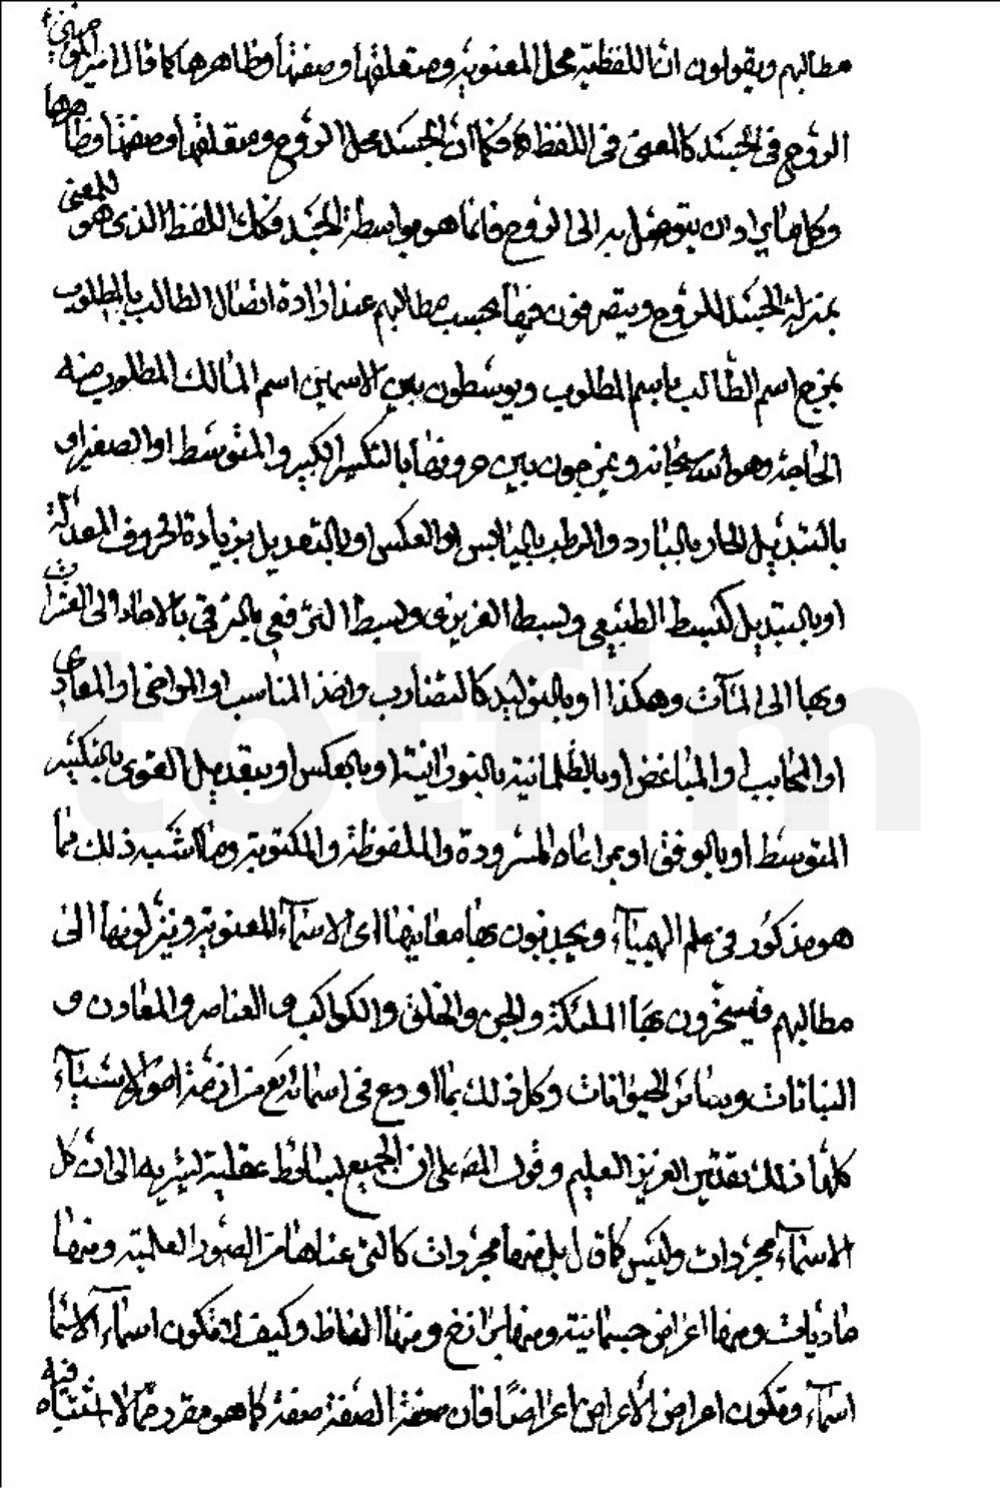 مطالبهم ويقولون ان اللفظية محل المعنوية ومتعلقها وصفتها وظاهرها كما قال امير المؤمنين ع
الروح في الجسد كالمعنى في اللفظ فكما ان الجسد محل الروح ومتعلقها وصفتها وظاهرها
وكل من اراد ان يتوصل به الى الروح فانما هو بواسطة الجسد فكك اللفظ الذي هو للمعنى
بمنزلة الجسد للروح ويتصرفون فيها بحسب مطالبهم عند ارادة اتصال الطالب بالمطلوب
بمزج اسم الطالب باسم المطلوب ويوسطون بين الاسمين اسم المالك المطلوب منه
الحاجة وهو الله سبحانه ويمزجون بين حروفها بالتكسير الكبير والمتوسط او الصغير او
بالتبديل الحار بالبارد والرطب باليابس او العكس او بالتعديل بزيادة الحروف المعدلة
او بالتبديل كبسط الطبيعي وبسط الغريزي وبسط الترفعي بالترقي بالاحاد الى العشرات
وبها الى المآت وهكذا او بالتوليد كالتضارب واخذ المناسب او المواخي او المعادي
او المحابب او المباغض او بالظلمانية بالنورانية او بالعكس او بتعديل القوى بالتكسير
المتوسط او بالوفق او بمراعاة المسرودة والملفوظة والمكتوبة وما اشبه ذلك مما
هو مذكور في علم الهيمياء ويجذبون بها معانيها اى الاسماء المعنوية وينزلونها الى
مطالبهم فيسخرون بها الملئكة والجن والخلق والكواكب والعناصر والمعادن و
النباتات وساير الحيوانات وكل ذلك بما اودع في اسمائه تع من ازمة اصول الاشياء
كلها ذلك تقدير العزيز العليم وقول المص على ان الجميع بسائط عقلية ليشير به الى ان كل
الاسماء مجردات وليس كما قال بل منها مجردات كالتي عناها من الصور العلمية ومنها
ماديات ومنها اعراض جسمانية ومنها برازخ ومنها الفاظ وكيف لا تكون اسماء الاسماء
اسماء وتكون اعراض الاعراض اعراضا فان صفة الصفة صفة كما هو مقرر مما لا اشتباه فيه